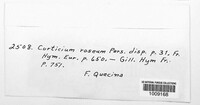 2508. Corticium roseum Pers. disp. p. 31, Fr.
Hym. Eur. p. 650. — Gill. Hym Fr.
p. 751.
F. Quercina
1009168